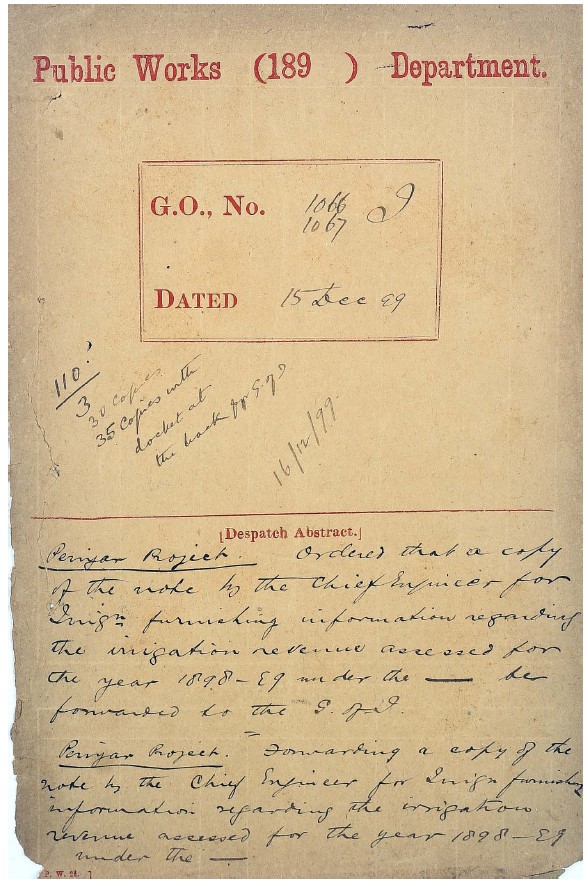 Public Works (189 ) Department.
G.O., No. 1066 I
1067
DATED 15 Dec 99
110
3
30 copies
35 copies with
docket at
the back for G of I
16/12/99
[Despatch Abstract.]
Periyar Project. Ordered that a copy
of the note by the Chief Engineer for
Irrign furnishing information regarding
the irrigation revenue assessed for
the year 1898-99 under the — be
forwarded to the G. of I.
Periyar Project. Forwarding a copy of the
note by the Chief Engineer for Irrign furnishing
information regarding the irrigation
revenue assessed for the year 1898-99
under the —
P. W. 24. ]